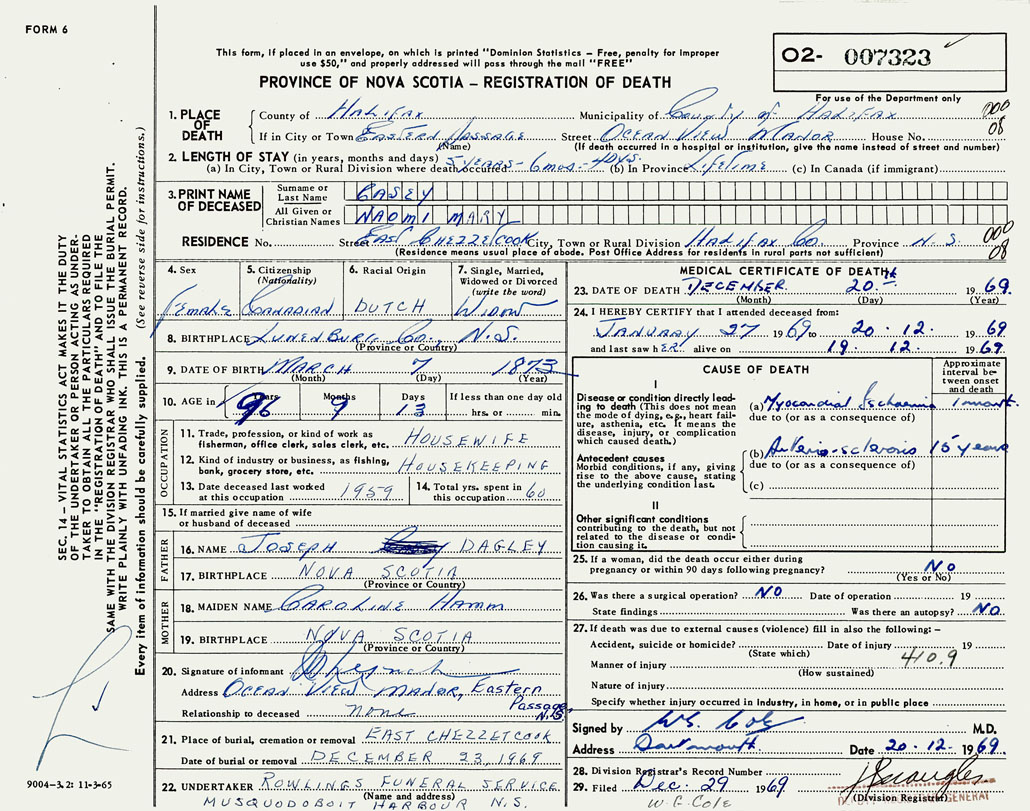 FORM 6
O2- 007323
This form, if placed in an envelope, on which is printed "Dominion Statistics – Free, penalty for improper
use $50," and properly addressed will pass through the mail "FREE"
PROVINCE OF NOVA SCOTIA – REGISTRATION OF DEATH
For use of the Department only
1. PLACE OF DEATH
County of HALIFAX Municipality of County of HALIFAX 000
If in City or Town EASTERN PASSAGE Street OCEAN VIEW MANOR House No. 08
(Name) (If death occurred in a hospital or institution, give the name instead of street and number)
2. LENGTH OF STAY (in years, months and days)
(a) In City, Town or Rural Division where death occurred 5 YEARS - 6 mos - 4 DYS. (b) In Province LIFETIME (c) In Canada (if immigrant)
3. PRINT NAME OF DECEASED
Surname or Last Name CASEY
All Given or Christian Names NAOMI MARY
RESIDENCE No. Street EAST CHEZZETCOOK City, Town or Rural Division HALIFAX Co. Province N.S. 000
(Residence means usual place of abode. Post Office Address for residents in rural parts not sufficient) 08
4. Sex Female
5. Citizenship (Nationality) CANADIAN
6. Racial Origin DUTCH
7. Single, Married, Widowed or Divorced (write the word) WIDOW
8. BIRTHPLACE LUNENBURG Co., N.S.
(Province or Country)
9. DATE OF BIRTH MARCH 7 1873
(Month) (Day) (Year)
10. AGE in Years 96 Months 9 Days 13 If less than one day old
hrs. or min.
OCCUPATION
11. Trade, profession, or kind of work as fisherman, office clerk, sales clerk, etc. HOUSEWIFE
12. Kind of industry or business, as fishing, bank, grocery store, etc. HOUSEKEEPING
13. Date deceased last worked at this occupation 1959
14. Total yrs. spent in this occupation 60
15. If married give name of wife
or husband of deceased
FATHER
16. NAME JOSEPH DAGLEY
17. BIRTHPLACE NOVA SCOTIA
(Province or Country)
MOTHER
18. MAIDEN NAME CAROLINE HAMM
19. BIRTHPLACE NOVA SCOTIA
(Province or Country)
20. Signature of informant
Address OCEAN VIEW MANOR, Eastern Passage, N.S.
Relationship to deceased none
21. Place of burial, cremation or removal EAST CHEZZETCOOK
Date of burial or removal DECEMBER 23, 1969
22. UNDERTAKER ROWLINGS FUNERAL SERVICE
(Name and address)
MUSQUODOBOIT HARBOUR N.S.
MEDICAL CERTIFICATE OF DEATH
23. DATE OF DEATH DECEMBER 20th 1969.
(Month) (Day) (Year)
24. I HEREBY CERTIFY that I attended deceased from:
JANUARY 27 1969 to 20. 12. 1969
and last saw hER alive on 19. 12. 1969.
CAUSE OF DEATH
Approximate interval between onset and death
I
Disease or condition directly leading to death (This does not mean the mode of dying, e.g., heart failure, asthenia, etc. It means the disease, injury, or complication which caused death.)
(a) Myocardial Ischaemia 1 month.
due to (or as a consequence of)
Antecedent causes
Morbid conditions, if any, giving rise to the above cause, stating the underlying condition last.
(b) Arterio-sclerosis 15 years
due to (or as a consequence of)
(c)
II
Other significant conditions
contributing to the death, but not related to the disease or condition causing it.
25. If a woman, did the death occur either during
pregnancy or within 90 days following pregnancy? NO
(Yes or No)
26. Was there a surgical operation? NO Date of operation 19
State findings Was there an autopsy? NO.
27. If death was due to external causes (violence) fill in also the following: –
Accident, suicide or homicide? Date of injury 19
(State which)
Manner of injury 410.9
(How sustained)
Nature of injury
Specify whether injury occurred in industry, in home, or in public place
Signed by W.G. Cole M.D.
Address Dartmouth. Date 20-12-1969.
28. Division Registrar's Record Number
29. Filed Dec. 29 1969
(Division Registrar)
GENERAL
W.G. Cole
SEC. 14 – VITAL STATISTICS ACT MAKES IT THE DUTY
OF THE UNDERTAKER OR PERSON ACTING AS UNDER-
TAKER TO OBTAIN ALL THE PARTICULARS REQUIRED
IN THE "REGISTRATION OF DEATH" AND TO FILE THE
SAME WITH THE DIVISION REGISTRAR WHO SHALL ISSUE THE BURIAL PERMIT.
WRITE PLAINLY WITH UNFADING INK. THIS IS A PERMANENT RECORD.
Every item of information should be carefully supplied. (See reverse side for instructions.)
9004–3.2: 11-3-65